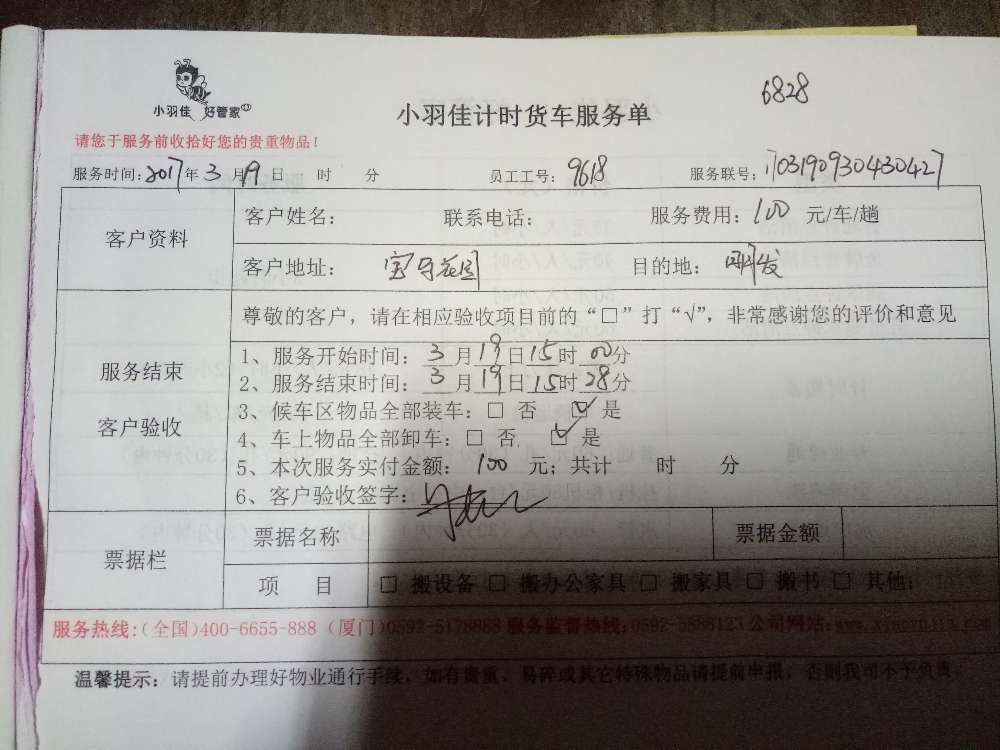 6828
小羽佳 好管家
小羽佳计时货车服务单
请您于服务前收拾好您的贵重物品！
服务时间：2017年3月19日 时 分 员工工号：9618 服务联号：1703190930430427
客户资料
客户姓名： 联系电话： 服务费用：100 元/车/趟
客户地址： 花园 目的地： 开发
尊敬的客户，请在相应验收项目前的“□”打“√”，非常感谢您的评价和意见
服务结束
客户验收
1、服务开始时间：3月19日15时00分
2、服务结束时间：3月19日15时28分
3、候车区物品全部装车：□ 否 ☑ 是
4、车上物品全部卸车：□ 否 ☑ 是
5、本次服务实付金额：100 元；共计 时 分
6、客户验收签字：
票据栏
票据名称 票据金额
项 目 □ 搬设备 □ 搬办公家具 □ 搬家具 □ 搬书 □ 其他：
服务热线：(全国)400-6655-888 (厦门)0592-5178888 服务监督热线：0592-5888123 公司网站：www.xiaoyujia.com
温馨提示：请提前办理好物业通行手续，如有贵重、易碎或其它特殊物品请提前申报，否则我司不予负责。